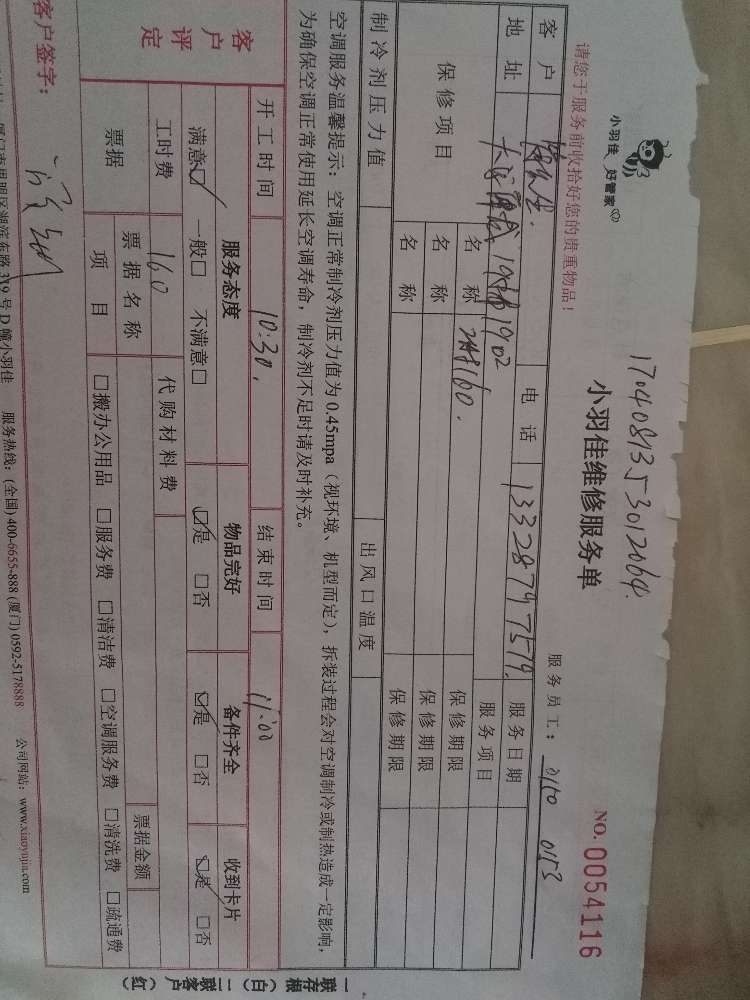 小羽佳 好管家
请您于服务前收拾好您的贵重物品！
1704081353012064
小羽佳维修服务单
NO. 0054116
服务员工： 0150 0153
客户 电话 13328797579 服务日期
地址 1902 服务项目
保修项目 名称 160 保修期限
名称 保修期限
名称 保修期限
制冷剂压力值 出风口温度
空调服务温馨提示：空调正常制冷剂压力值为0.45mpa（视环境、机型而定），拆装过程会对空调制冷或制热造成一定影响，
为确保空调正常使用延长空调寿命，制冷剂不足时请及时补充。
开工时间 10:30 结束时间 11:00
客户评定 服务态度 物品完好 备件齐全 收到卡片
满意☑ 一般□ 不满意□ ☑是 □否 ☑是 □否 ☑是 □否
工时费 160 代购材料费
票据 票据名称 票据金额
项目 □搬办公用品 □服务费 □清洁费 □空调服务费 □清洗费 □疏通费
客户签字：
厦门市思明区湖滨东路319号D幢小羽佳 服务热线：(全国) 400-6655-888 (厦门) 0592-5178888 公司网站：www.xiaoyujia.com
一联存根（白） 二联客户（红）